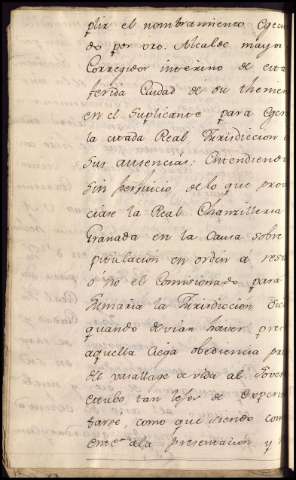 plir el nombramiento egecu
do por vro. Alcalde mayor
Corregidor interino de esta
ferida Ciudad de su themen
en el Suplicante para egen
la citada Real Jurisdiccion
sus ausencias: Entendiendo
sin perjuicio de lo que pron
ciare la Real Chanzilleria
Granada en la Causa sobre
pitulacion en orden a resu
ó no el Comisionado para
sumaria la Jurisdiccion
quando devian haver pre
aquella ciega obediencia
vasallage devida al Sover
estubo tan lejos de
sarse, como que siendo com
a la presentacion y